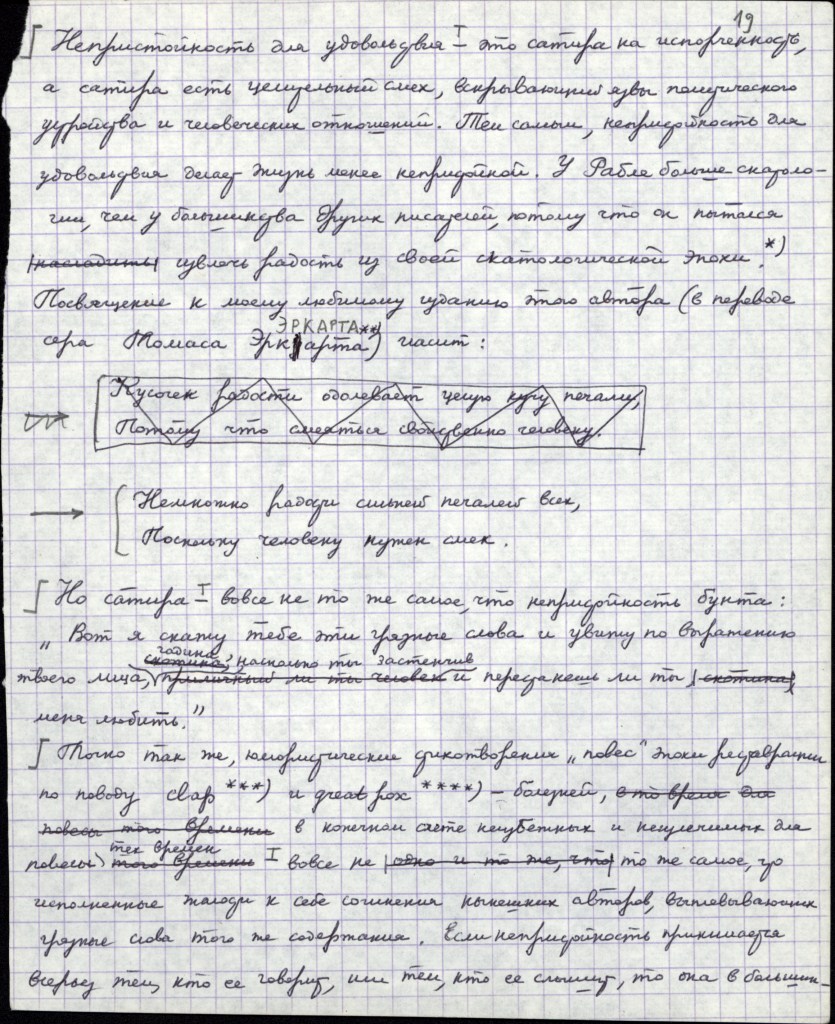 19
Непристойность для удовольствия – это сатира на испорченность,
а сатира есть целительный смех, вскрывающий язвы политического
устройства и человеческих отношений. Тем самым, непристойность для
удовольствия делает жизнь менее непристойной. У Рабле больше скатоло-
гии, чем у большинства других писателей, потому что он пытался
насладить извлечь радость из своей скатологической эпохи.*)
Посвящение к моему любимому изданию этого автора (в переводе
ЭРКАРТА**)
сэра Томаса Эркарта) гласит:
Кусочек радости одолевает целую кучу печали,
Потому что смеяться свойственно человеку.
Немножко радости сильней печалей всех,
Поскольку человеку нужен смех.
Но сатира – вовсе не то же самое, что непристойность бунта:
„Вот я скажу тебе эти грязные слова и увижу по выражению
скотина, насколько ты застенчив
твоего лица, приличный ли ты человек и перестанешь ли ты, скотина,
меня любить."
Точно так же, юмористические стихотворения „повес" эпохи реставрации
по поводу clap ***) и great pox ****) – болезней, в то время для
повесы того времени в конечном счете неизбежных и неизлечимых для
тех времен
повесы того времени – вовсе не одно и то же, что то же самое, что
исполненные жалости к себе сочинения нынешних авторов, выплевывающих
грязные слова того же содержания. Если непристойность принимается
всерьез тем, кто ее говорит, или тем, кто ее слышит, то она в большин-